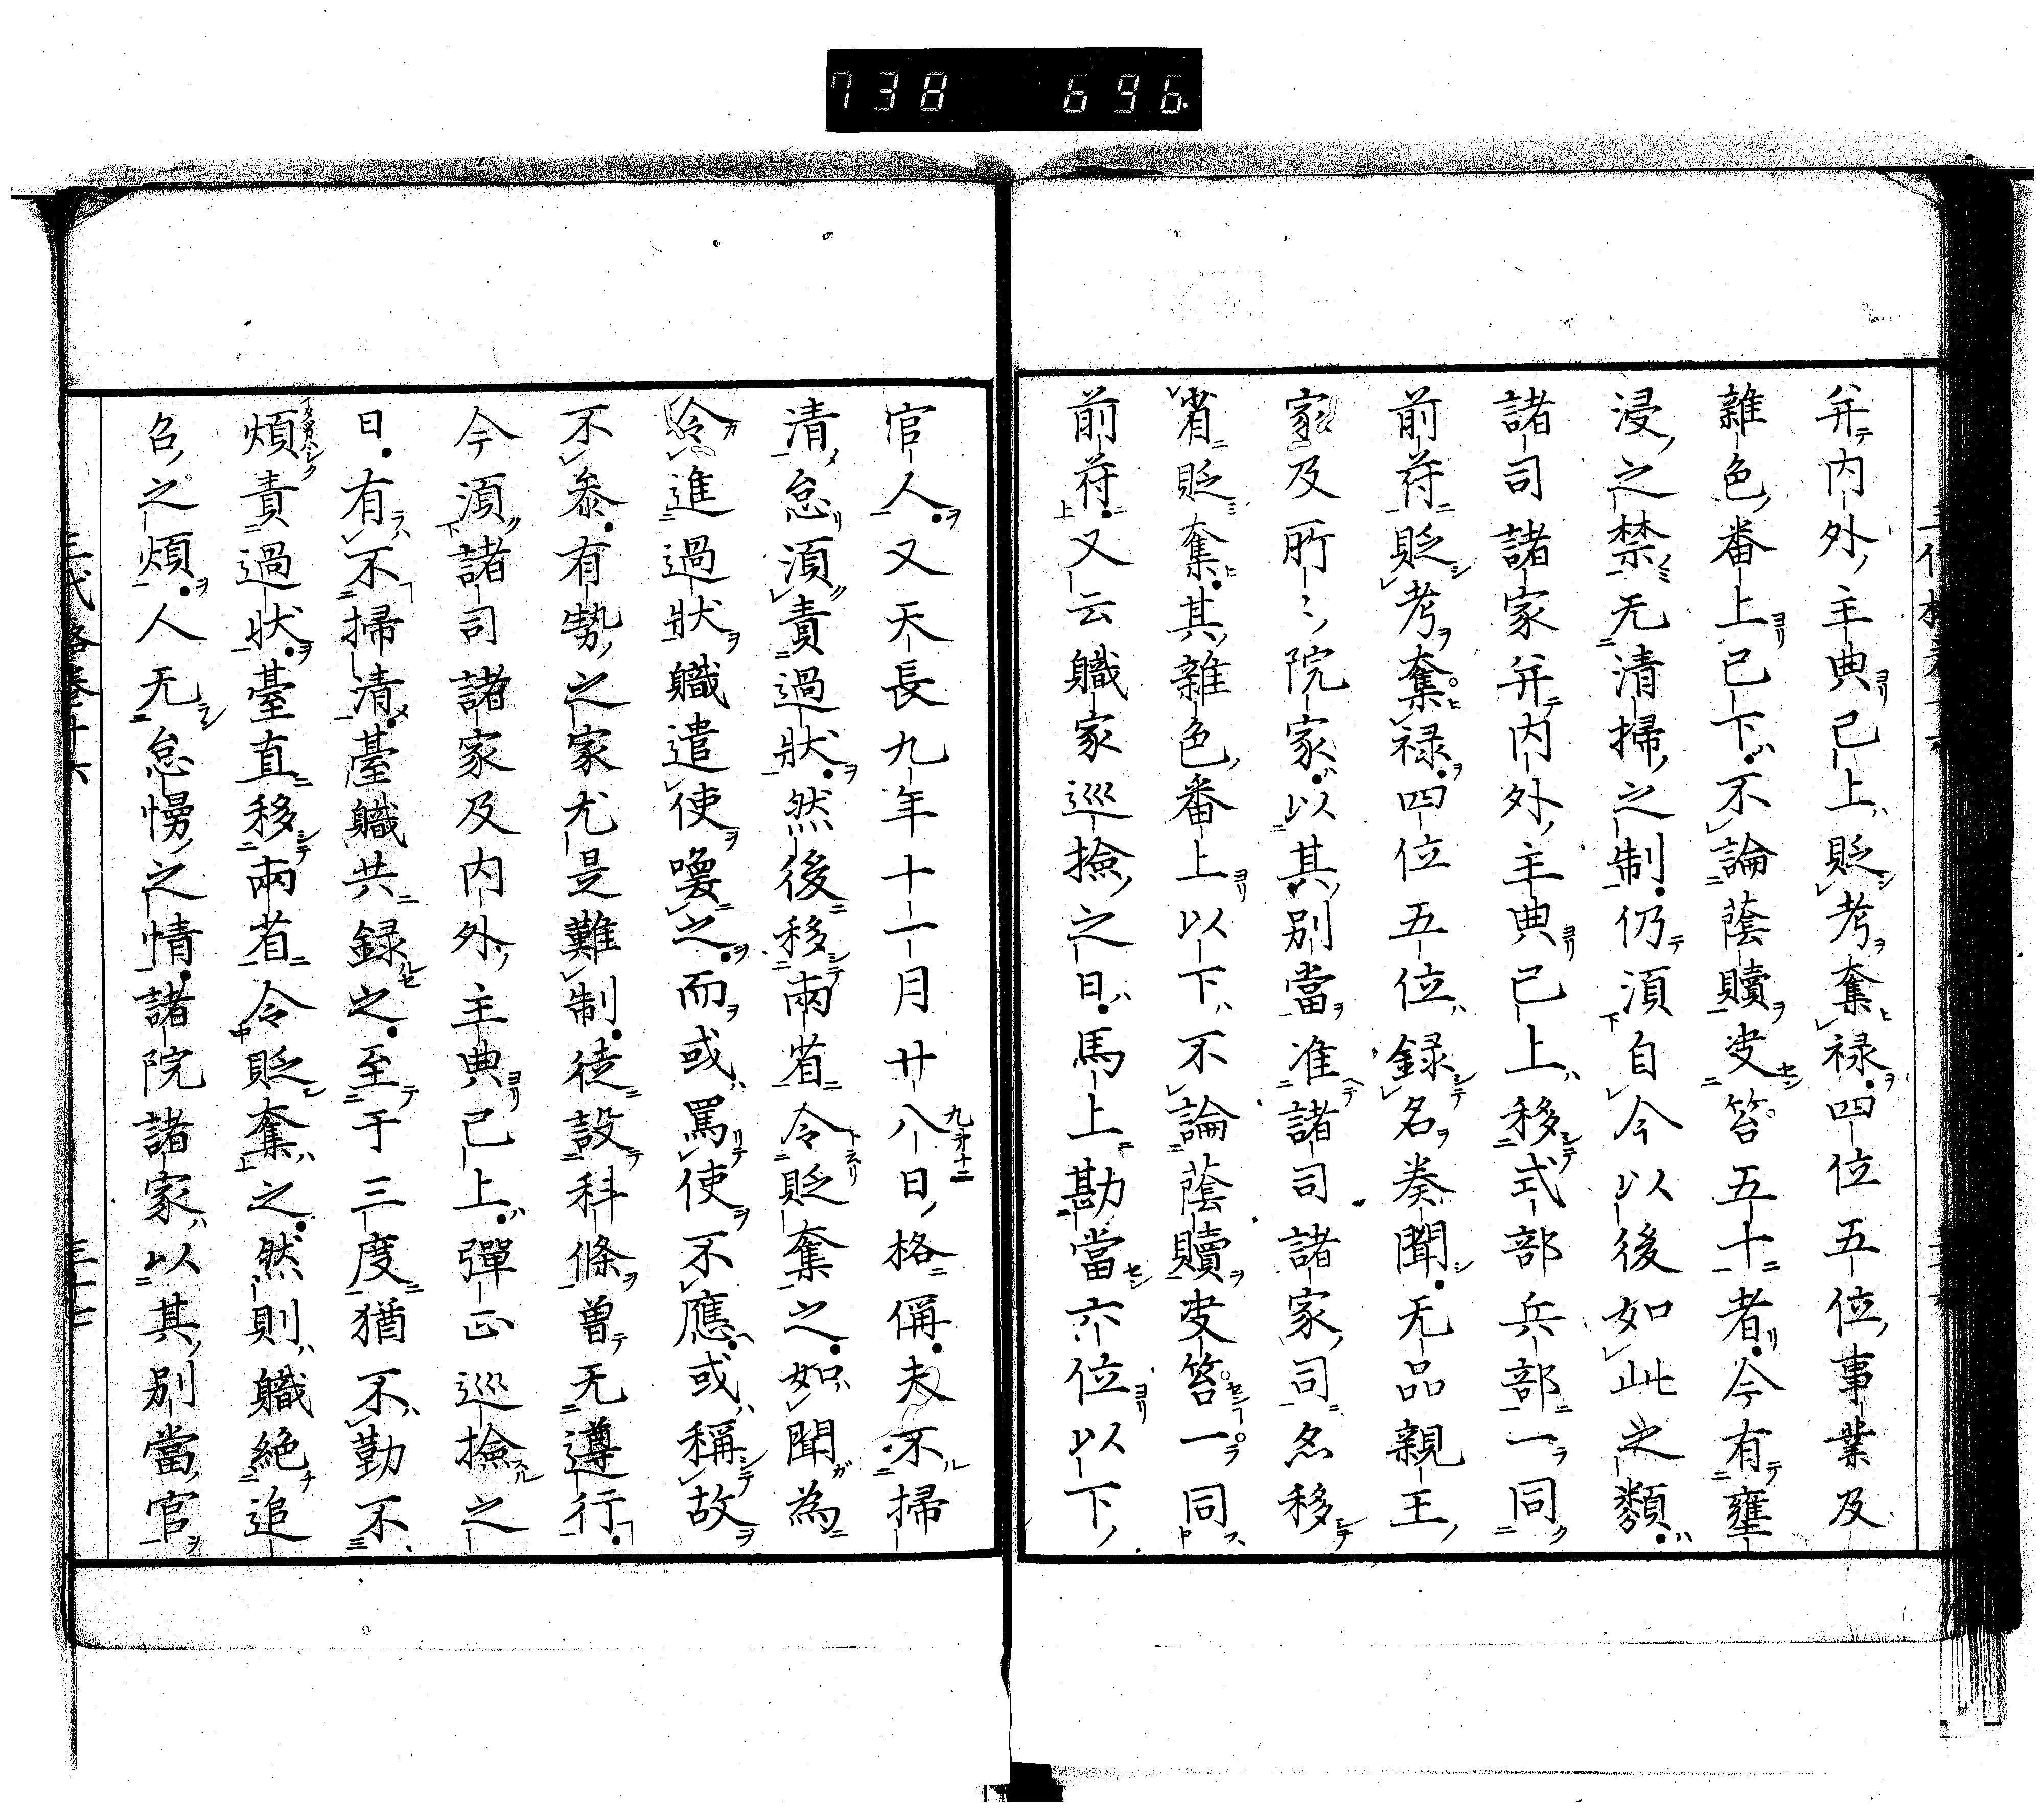 738 696
弁内外主典已上貶考奪禄四位五位事業及
雜色番上已下不論蔭贖决笞五十者今有壅
浸之禁无清掃之制仍湏自今以後如此之類
諸司諸家弁内外主典已上移式部兵部一同
前苻貶考奪禄四位五位録名奏聞无品親王
家及所〻院家以其别當准諸司諸家司名移
省貶奪其雜色番上以下不論蔭贖决笞一同
前苻又云軄家巡撿之日馬上勘當六位以下
官人又天長九年十一月廿八日格偁夫不掃
清怠湏責過狀然後移兩省令貶奪之如聞為
令進過狀軄遣使喚之而或罵使不應或稱故
不參有勢之家尤是難制徒設科條曾无遵行
今湏諸司諸家及内外主典已上彈正巡撿之
日有不掃清臺軄共録之至于三度猶不勤不
煩責過狀臺直移兩省令貶奪之然則軄絶追
召之煩人无怠慢之情諸院諸家以其别當官
三代格卷十六